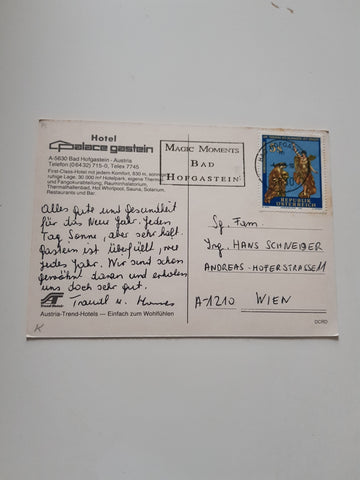 Hotel
Palace gastein
A-5630 Bad Hofgastein - Austria
Telefon (0 64 32) 715-0, Telex 7745
First-Class-Hotel mit jedem Komfort, 830 m, sonnige
ruhige Lage, 30 000 m² Hotelpark, eigene Thermal-
und Fangokurabteilung, Rauminhalatorium,
Thermalhallenbad, Hot Whirlpool, Sauna, Solarium,
Restaurants und Bar.
Alles Gute und Gesundheit
für das Neue Jahr. Jeden
Tag Sonne, aber sehr kalt.
Gastein ist überfüllt, wie
jedes Jahr. Wir sind schon
gewöhnt daran und erholen
uns doch sehr gut.
Traudl u.
Trend Hotel
Austria-Trend-Hotels — Einfach zum Wohlfühlen
K
MAGIC MOMENTS
BAD
HOFGASTEIN
REPUBLIK
ÖSTERREICH
Sg. Fam.
Ing. HANS SCHNEIBER
ANDREAS-HOFERSTRASSE 11
A-1210 WIEN
DCRO